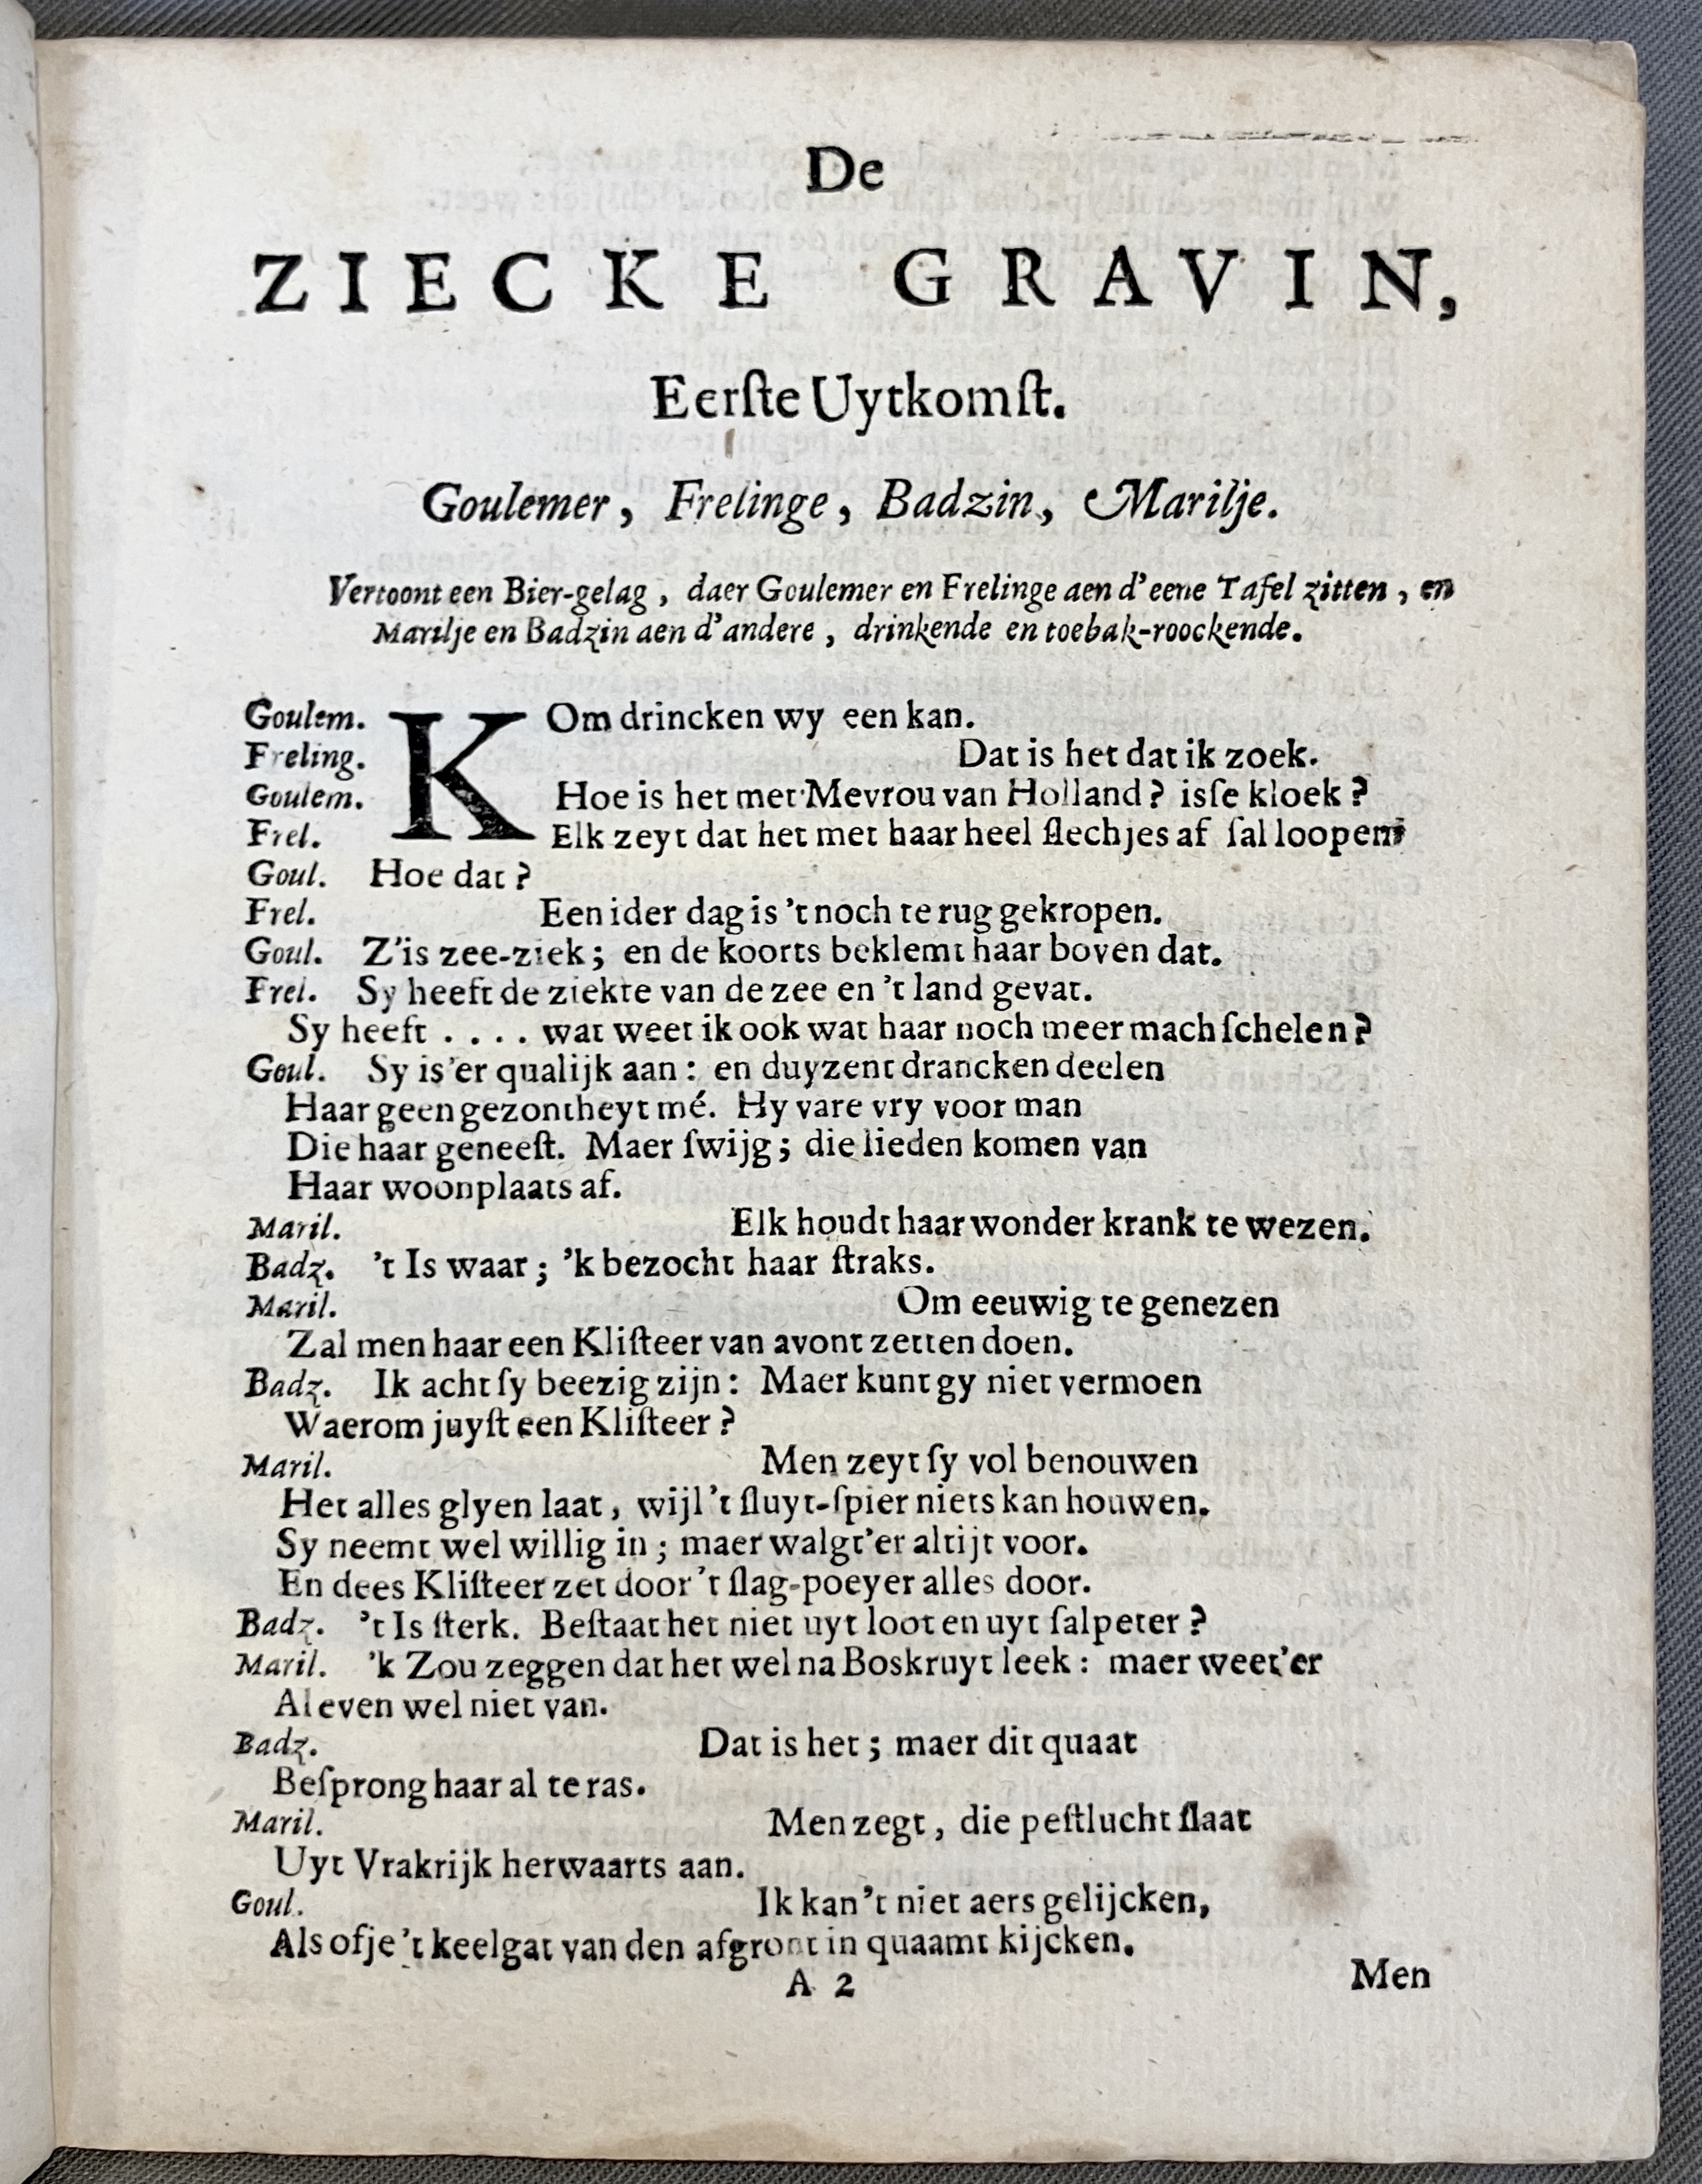 De
ZIECKE GRAVIN,
Eerſte Uytkomſt.
Goulemer, Frelinge, Badzin, Marilje.
Vertoont een Bier-gelag, daer Goulemer en Frelinge aen d'eene Tafel zitten, en
Marilje en Badzin aen d'andere, drinkende en toebak-roockende.
Goulem. KOm drincken wy een kan.
Freling. Dat is het dat ik zoek.
Goulem. Hoe is het met Mevrou van Holland? isſe kloek?
Frel. Elk zeyt dat het met haar heel ſlechjes af ſal loopen.
Goul. Hoe dat?
Frel. Een ider dag is 't noch te rug gekropen.
Goul. Z'is zee-ziek; en de koorts beklemt haar boven dat.
Frel. Sy heeft de ziekte van de zee en 't land gevat.
Sy heeft . . . . wat weet ik ook wat haar noch meer mach ſchelen?
Goul. Sy is'er qualijk aan: en duyzent drancken deelen
Haar geen gezontheyt mé. Hy vare vry voor man
Die haar geneeſt. Maer ſwijg; die lieden komen van
Haar woonplaats af.
Maril. Elk houdt haar wonder krank te wezen.
Badz. 't Is waar; 'k bezocht haar ſtraks.
Maril. Om eeuwig te genezen
Zal men haar een Kliſteer van avont zetten doen.
Badz. Ik acht ſy beezig zijn: Maer kunt gy niet vermoen
Waerom juyſt een Kliſteer?
Maril. Men zeyt ſy vol benouwen
Het alles glyen laat, wijl 't ſluyt-ſpier niets kan houwen.
Sy neemt wel willig in; maer walgt'er altijt voor.
En dees Kliſteer zet door 't ſlag-poeyer alles door.
Badz. 't Is ſterk. Beſtaat het niet uyt loot en uyt ſalpeter?
Maril. 'k Zou zeggen dat het wel na Boskruyt leek: maer weet'er
Al even wel niet van.
Badz. Dat is het; maer dit quaat
Beſprong haar al te ras.
Maril. Men zegt, die peſtlucht ſlaat
Uyt Vrakrijk herwaarts aan.
Goul. Ik kan 't niet aers gelijcken,
Als ofje 't keelgat van den afgront in quaamt kijcken.
A 2
Men